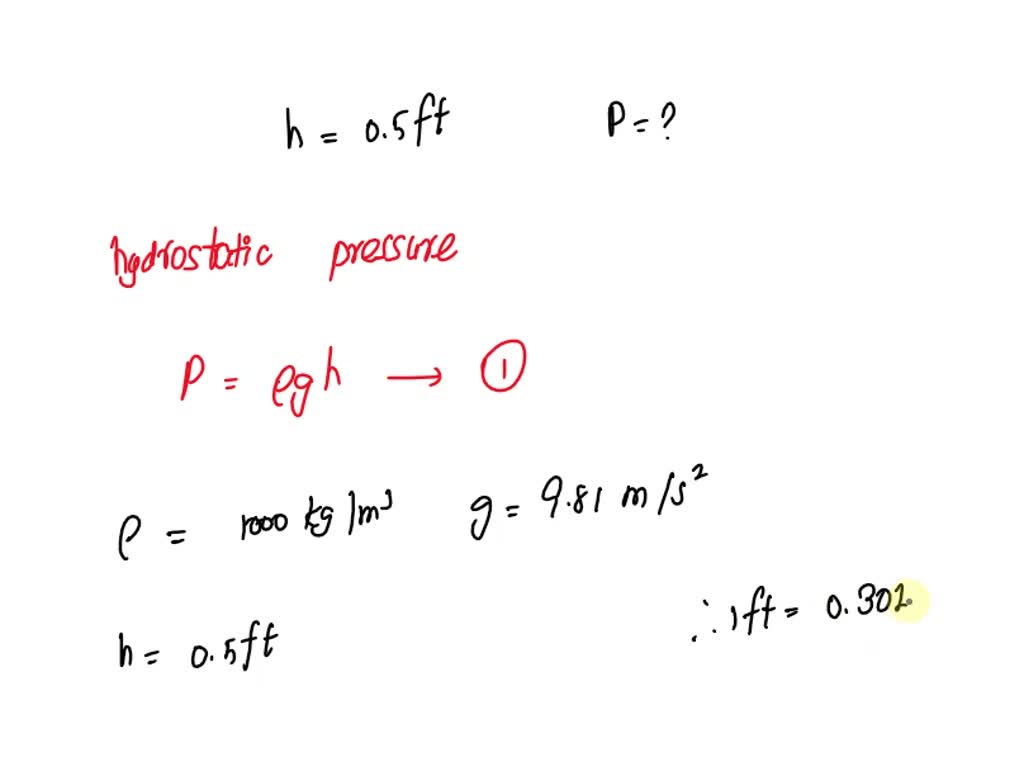 h = 0.5ft P = ?
hydrostatic pressure
P = ρgh → ①
ρ = 1000 kg/m³ g = 9.81 m/s²
∴ 1ft = 0.302
h = 0.5ft